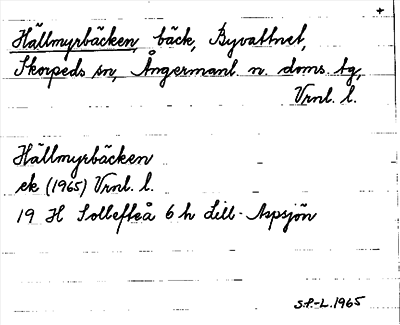 +
Hällmyrbäcken, bäck, Byvattnet,
Skorpeds sn, Ångermanl. n. doms. tg,
Vrnl. l.
Hällmyrbäcken
ek (1965) Vrnl. l.
19 H Sollefteå 6 h Lill-Aspsjön
S.P.-L. 1965